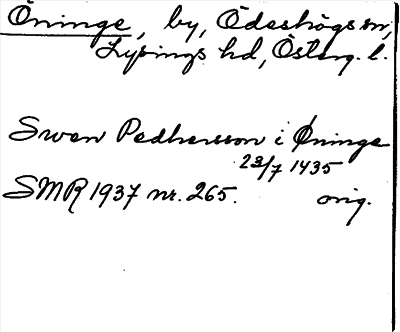 Öninge, by, Ödeshögs sn,
Lysings hd, Österg. l.
Swen Pedhersson i Øninge
23/7 1435
SMR 1937 nr. 265. orig.